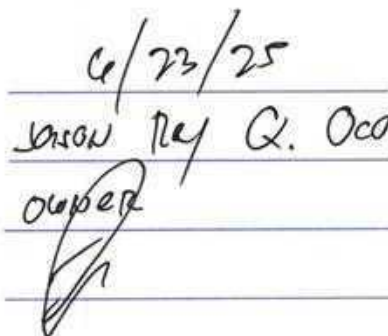 6/23/25
Jason Ray Q. Oco
owner